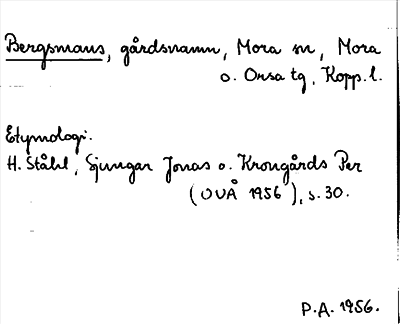 Bergsmans, gårdsnamn, Mora sn, Mora
o. Orsa tg, Kopp. l.
Etymologi:
H. Ståhl, Sjungar Jonas o. Krongårds Per
(OUÅ 1956), s. 30.
P.A. 1956.